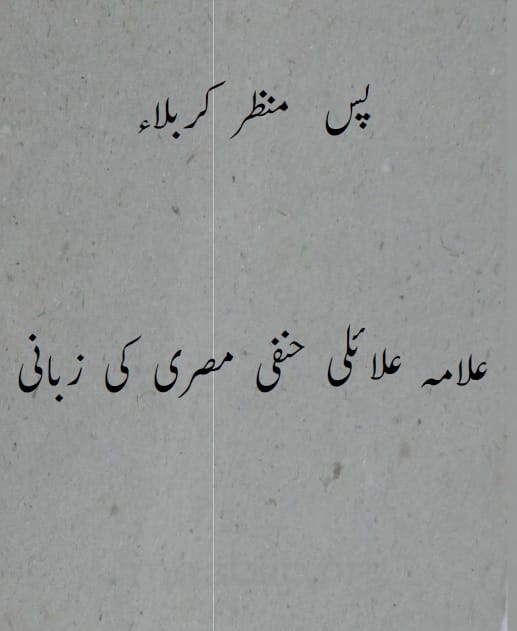 پس منظر کربلاء
علامہ علائلی حنفی مصری کی زبانی